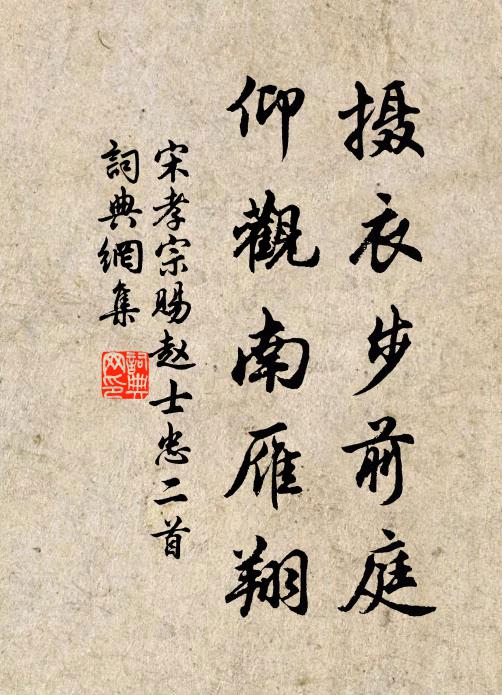 摄衣步前庭
仰觀南雁翔
宋孝宗賜赵士忠二首
詞典網集
詞典网印